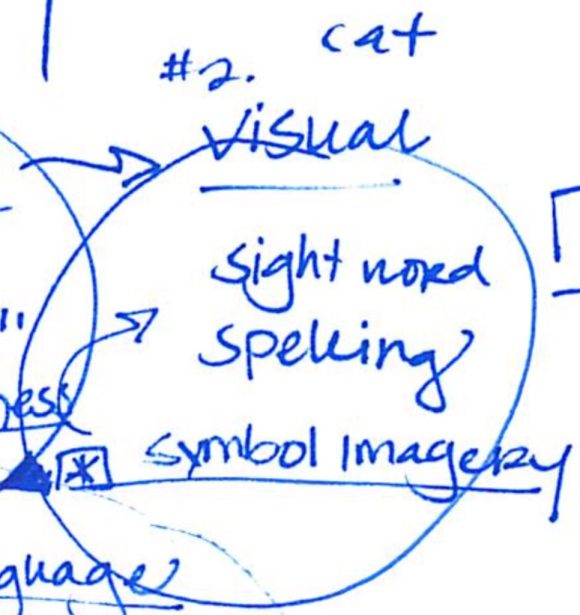 cat
#2.
Visual
sight word
spelling
symbol Imagery